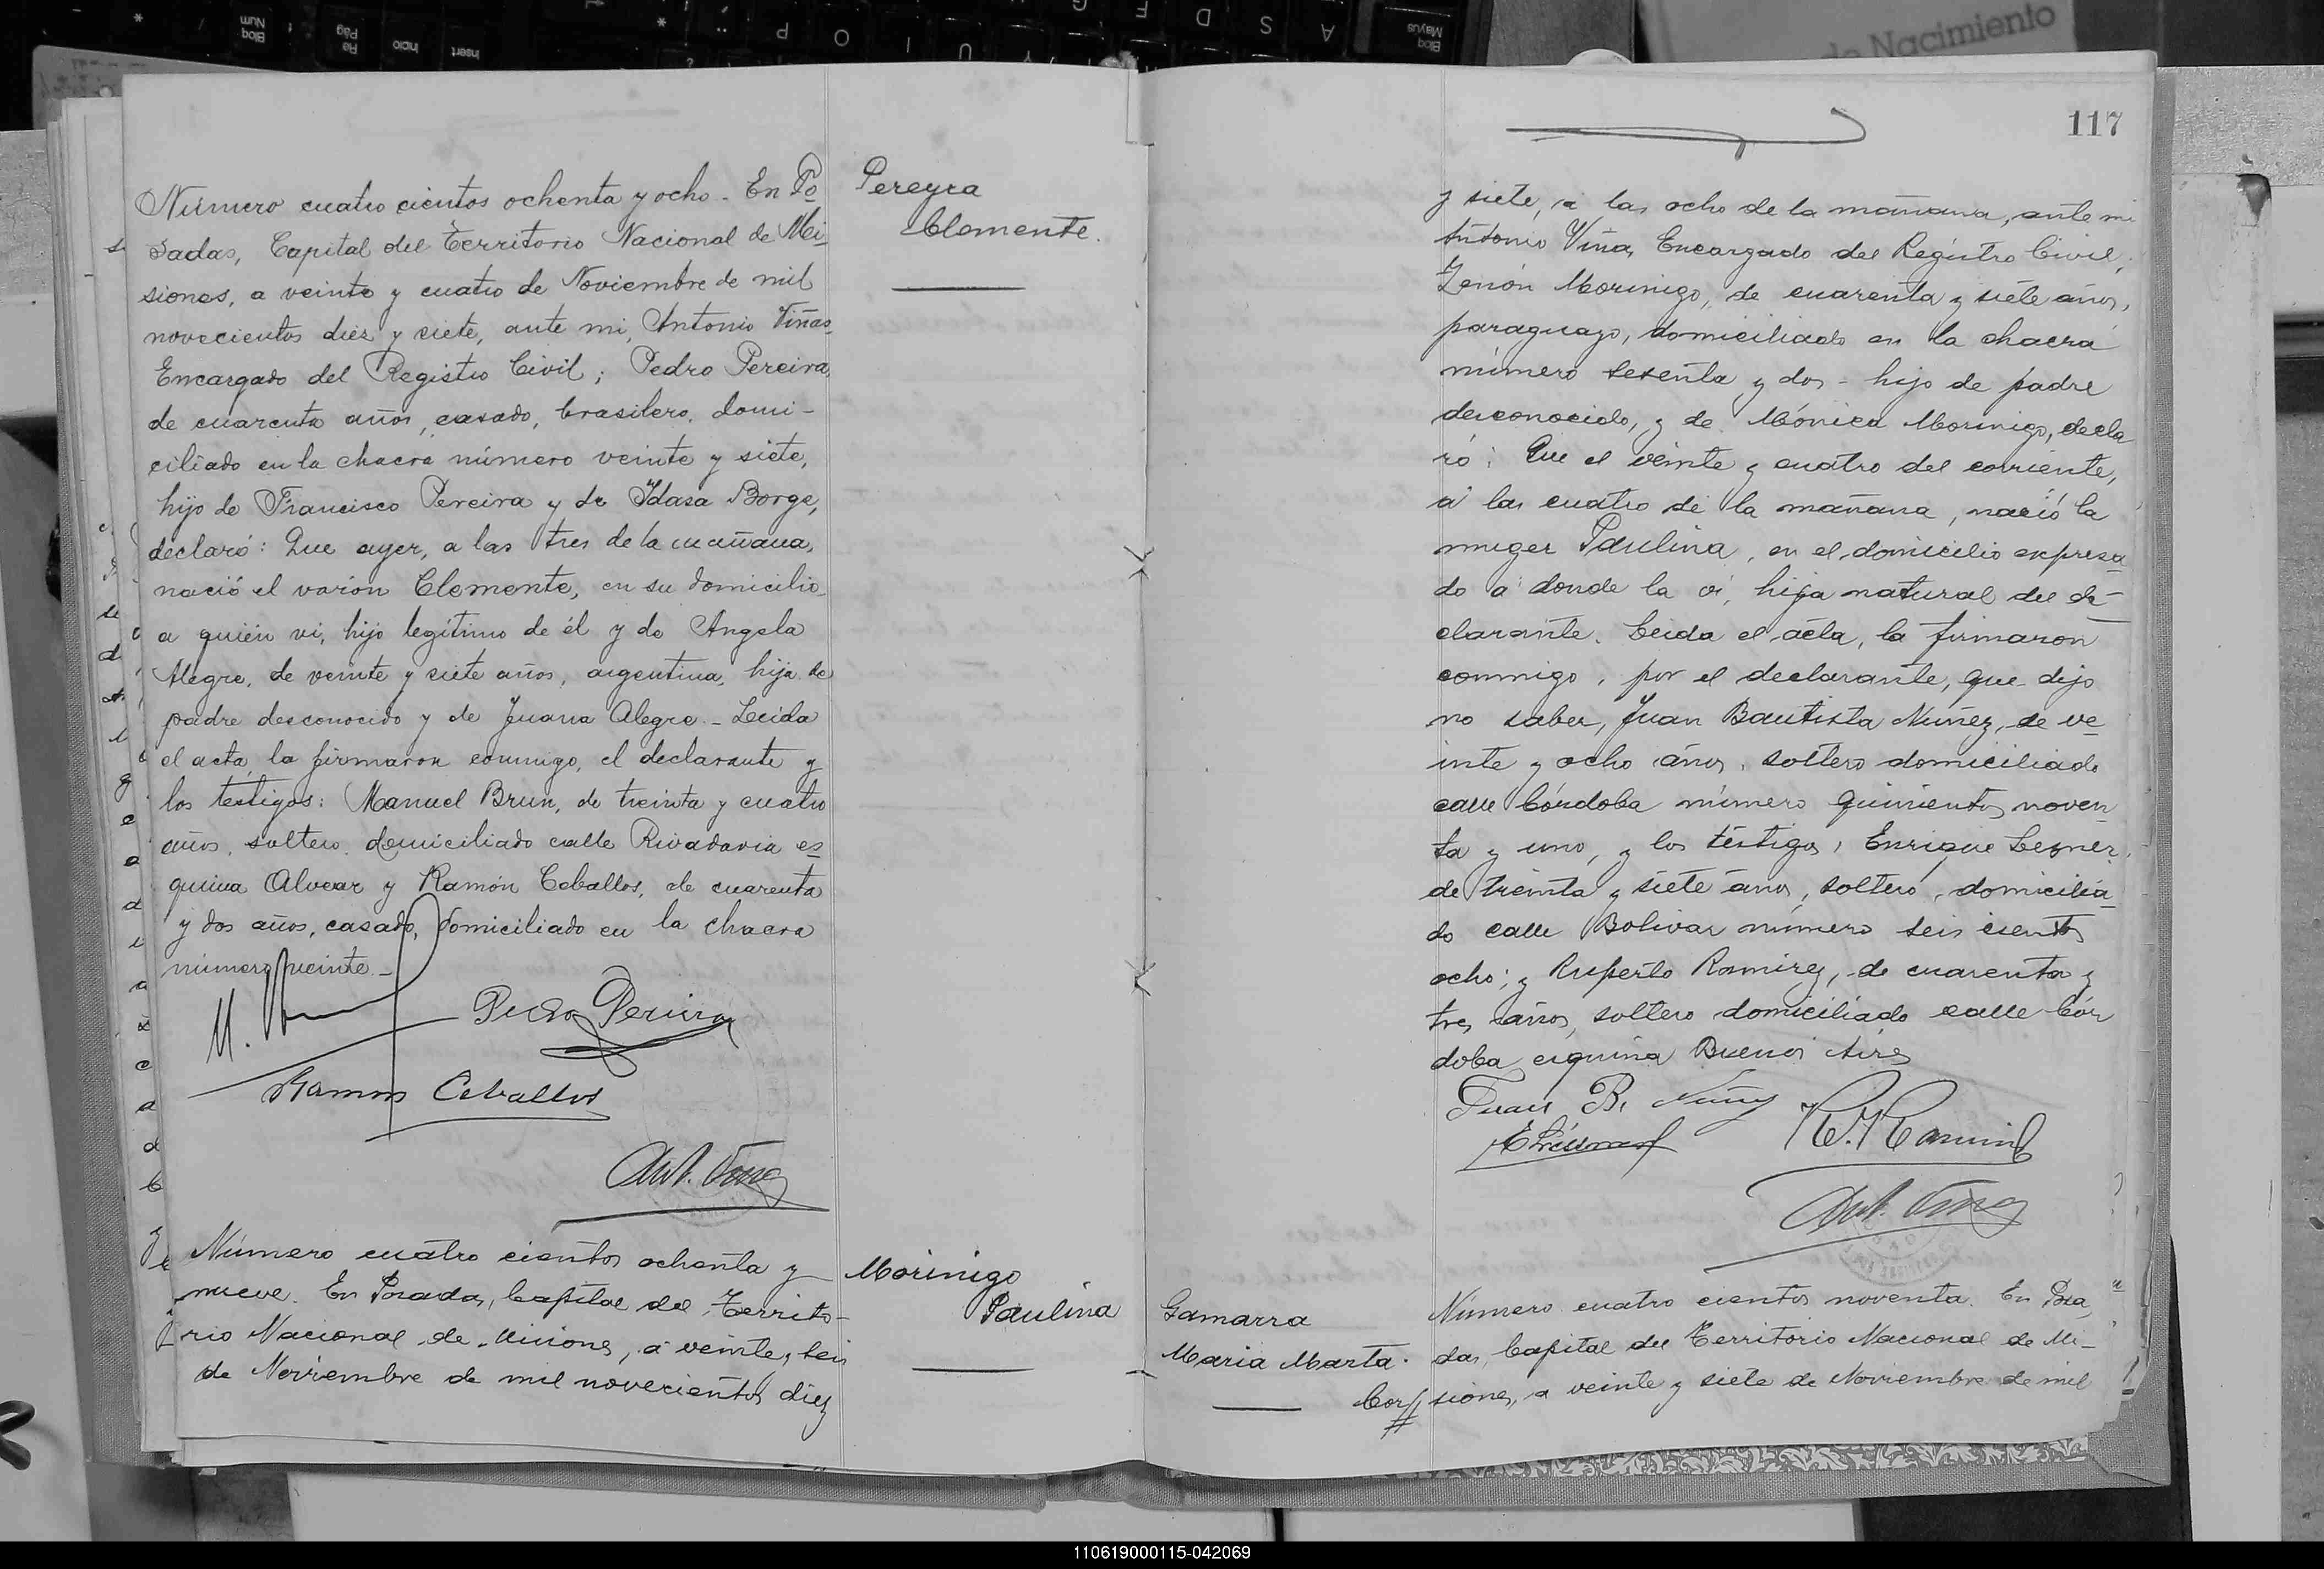 Número cuatro cientos ochenta y ocho. En Po
sadas, Capital del Territorio Nacional de Mi-
siones, a veinte y cuatro de Noviembre de mil
novecientos diez y siete, ante mi, Antonio Viñas
Encargado del Registro Civil; Pedro Pereira,
de cuarenta años, casado, brasilero, domi-
ciliado en la chacra número veinte y siete,
hijo de Francisco Pereira y de Ydasa Borge,
declaró: Que ayer, a las tres de la mañana,
nació el varón Clemente, en su domicilio
a quién vi, hijo legítimo de él y de Angela
Alegre, de veinte y siete años, argentina, hija de
padre desconocido y de Juana Alegre.- Leida
el acta, la firmaron conmigo, el declarante y
los testigos: Manuel Brun, de treinta y cuatro
años, soltero, domiciliado calle Rivadavia es-
quina Alvear y Ramón Ceballos, de cuarenta
y dos años, casado, domiciliado en la chacra
número veinte.-
Pereyra
Clemente.
Pedro Pereira
Ramon Ceballos
Ant. Viñas
Número cuatro cientos ochenta y
nueve. En Posadas, Capital del Territo-
rio Nacional de Misiones, a veinte y seis
de Noviembre de mil novecientos diez
Morinigo
Paulina
117
y siete, a las ocho de la mañana, ante mi
Antonio Viñas, Encargado del Registro Civil,
Zenón Morinigo, de cuarenta y siete años,
paraguayo, domiciliado en la chacra
número sesenta y dos - hijo de padre
desconocido, y de Mónica Morinigo, decla
ró: Que el veinte y cuatro del corriente,
a las cuatro de la mañana, nació la
muger Paulina, en el domicilio expresa-
do a donde la vi, hija natural del de-
clarante. Leida el acta, la firmaron
conmigo, por el declarante, que dijo
no saber, Juan Bautista Nuñez, de ve-
inte y ocho años, soltero domiciliado
calle Córdoba número quinientos noven-
ta y uno, y los testigos, Enrique
de treinta y siete años, soltero, domicilia-
do calle Bolivar número seis cientos
ocho; y Ruperto Ramirez, de cuarenta y
tres años, soltero domiciliado calle Cór
doba esquina Buenos Aires
Juan B. Nuñez
R. Ramirez
Ant. Viñas
Gamarra
Maria Marta.
Número cuatro cientos noventa. En Posa
das, Capital del Territorio Nacional de Mi-
siones, a veinte y siete de Noviembre de mil
de Nacimiento
110619000115-042069